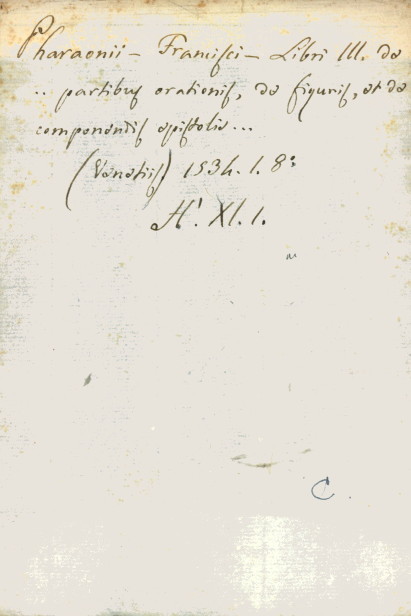 Pharaonii – Francisci – Libri III. de
.. partibus orationis, de figuris, et de
componendis epistolis ...
(Venetiis) 1534. 1. 8:
H! XI. 1.
C.